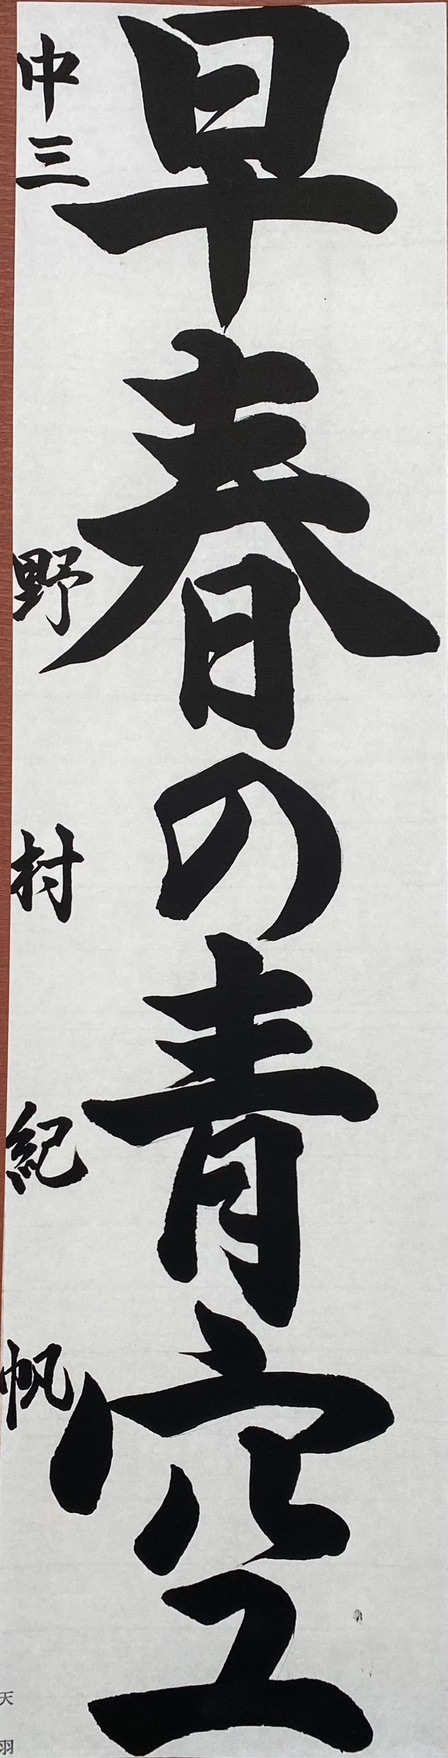 早春の青空
中三 野村紀帆
天羽